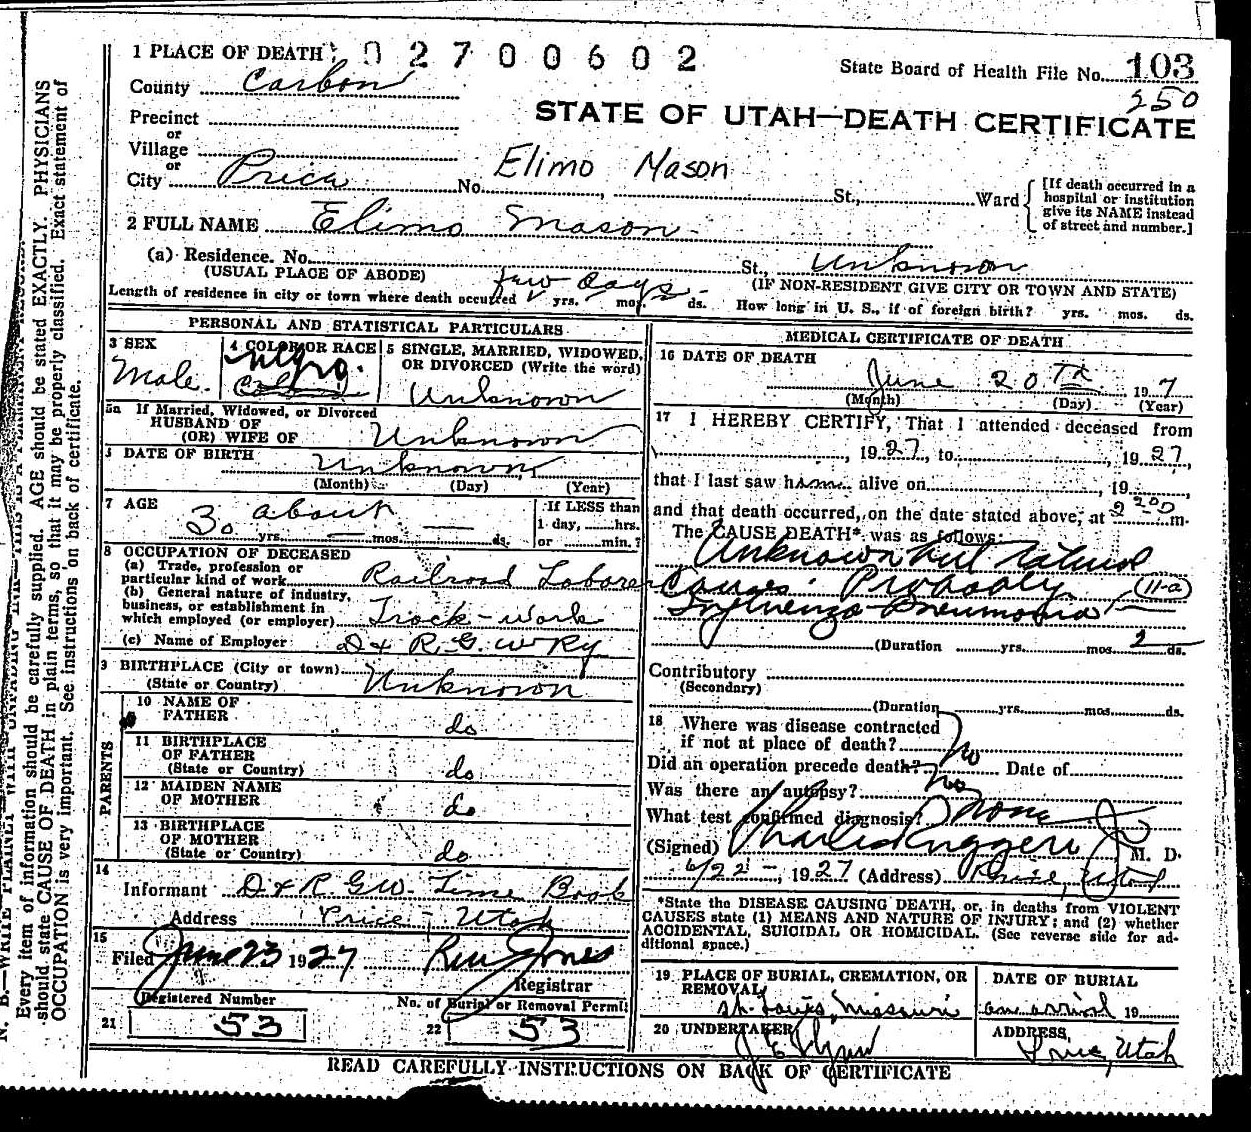 1 PLACE OF DEATH 02700602
State Board of Health File No. 103
County Carbon
250
STATE OF UTAH—DEATH CERTIFICATE
Precinct
or
Village
or
City Price No. St., Ward
Elimo Mason
[If death occurred in a
hospital or institution
give its NAME instead
of street and number.]
2 FULL NAME Elimo Mason
(a) Residence. No. St., Unknown
(USUAL PLACE OF ABODE) (IF NON-RESIDENT GIVE CITY OR TOWN AND STATE)
Length of residence in city or town where death occurred few days yrs. mos. ds. How long in U. S., if of foreign birth? yrs. mos. ds.
PERSONAL AND STATISTICAL PARTICULARS
3 SEX
Male.
4 COLOR OR RACE
Negro.
5 SINGLE, MARRIED, WIDOWED,
OR DIVORCED (Write the word)
Unknown
5a If Married, Widowed, or Divorced
HUSBAND OF
(OR) WIFE OF Unknown
DATE OF BIRTH
Unknown
(Month) (Day) (Year)
7 AGE
30 about
yrs. mos. ds.
If LESS than
1 day, hrs.
or min.?
8 OCCUPATION OF DECEASED
(a) Trade, profession or
particular kind of work Railroad Laborer
(b) General nature of industry,
business, or establishment in
which employed (or employer) Track-work
(c) Name of Employer D & R. G. W Ry
9 BIRTHPLACE (City or town)
(State or Country) Unknown
PARENTS
10 NAME OF
FATHER do
11 BIRTHPLACE
OF FATHER
(State or Country) do
12 MAIDEN NAME
OF MOTHER do
13 BIRTHPLACE
OF MOTHER
(State or Country) do
14
Informant D & R. G W. Time Book
Address Price, Utah
15
Filed June 23 1927
Registrar
Registered Number
21 53
No. of Burial or Removal Permit
22 53
MEDICAL CERTIFICATE OF DEATH
16 DATE OF DEATH
June 20TH 197
(Month) (Day) (Year)
17 I HEREBY CERTIFY, That I attended deceased from
, 1927, to , 1927,
that I last saw him alive on , 19 ,
and that death occurred, on the date stated above, at 2 m.
The CAUSE DEATH* was as follows:
Unknown but natural
Causes. Probably (11-a)
Influenza-Pneumonia
(Duration yrs. mos. 2 ds.
Contributory
(Secondary)
(Duration yrs. mos. ds.
18 Where was disease contracted
if not at place of death?
Did an operation precede death? No Date of
Was there an autopsy? No
What test confirmed diagnosis? None
(Signed) Charles Ruggeri Jr M. D.
6/22 -, 1927 (Address) Price, Utah
*State the DISEASE CAUSING DEATH, or, in deaths from VIOLENT
CAUSES state (1) MEANS AND NATURE OF INJURY; and (2) whether
ACCIDENTAL, SUICIDAL OR HOMICIDAL. (See reverse side for ad-
ditional space.)
19 PLACE OF BURIAL, CREMATION, OR
REMOVAL
St. Louis, Missouri
DATE OF BURIAL
on arrival 19
20 UNDERTAKER
J E Flynn
ADDRESS
Price, Utah
READ CAREFULLY INSTRUCTIONS ON BACK OF CERTIFICATE
Every item of information should be carefully supplied. AGE should be stated EXACTLY. PHYSICIANS
should state CAUSE OF DEATH in plain terms, so that it may be properly classified. Exact statement of
OCCUPATION is very important. See instructions on back of certificate.